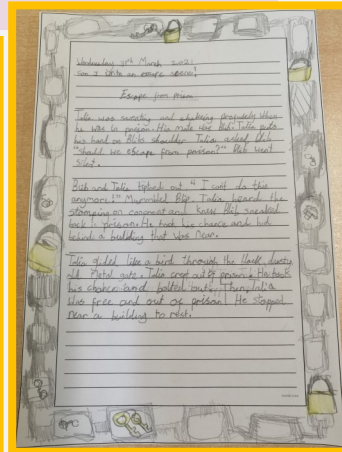 Wednesday 3rd March 2021
Can I write an escape scene?
Escape from prison
Talia was sweating and shaking profusely when
he was in prison. His mate was Blib. Talia puts
his hand on Blibs shoulder Talia asked Blib
"Should we escape from porison?" Blib went
silent.
Blib and Talia tiptoed out "I cant do this
anymore!" Murmbled Blip. Talia heard the
stomping on concreat and knew Blib sneaked
back prison. He took his chance and hid
behind a building that was near.
Talia glided like a bird through the black, dusty
old metal gate. Talia crept out of prison. He took
his chance and bolted out. Then, talia
was free and out of prison. He stopped
near a building to rest.